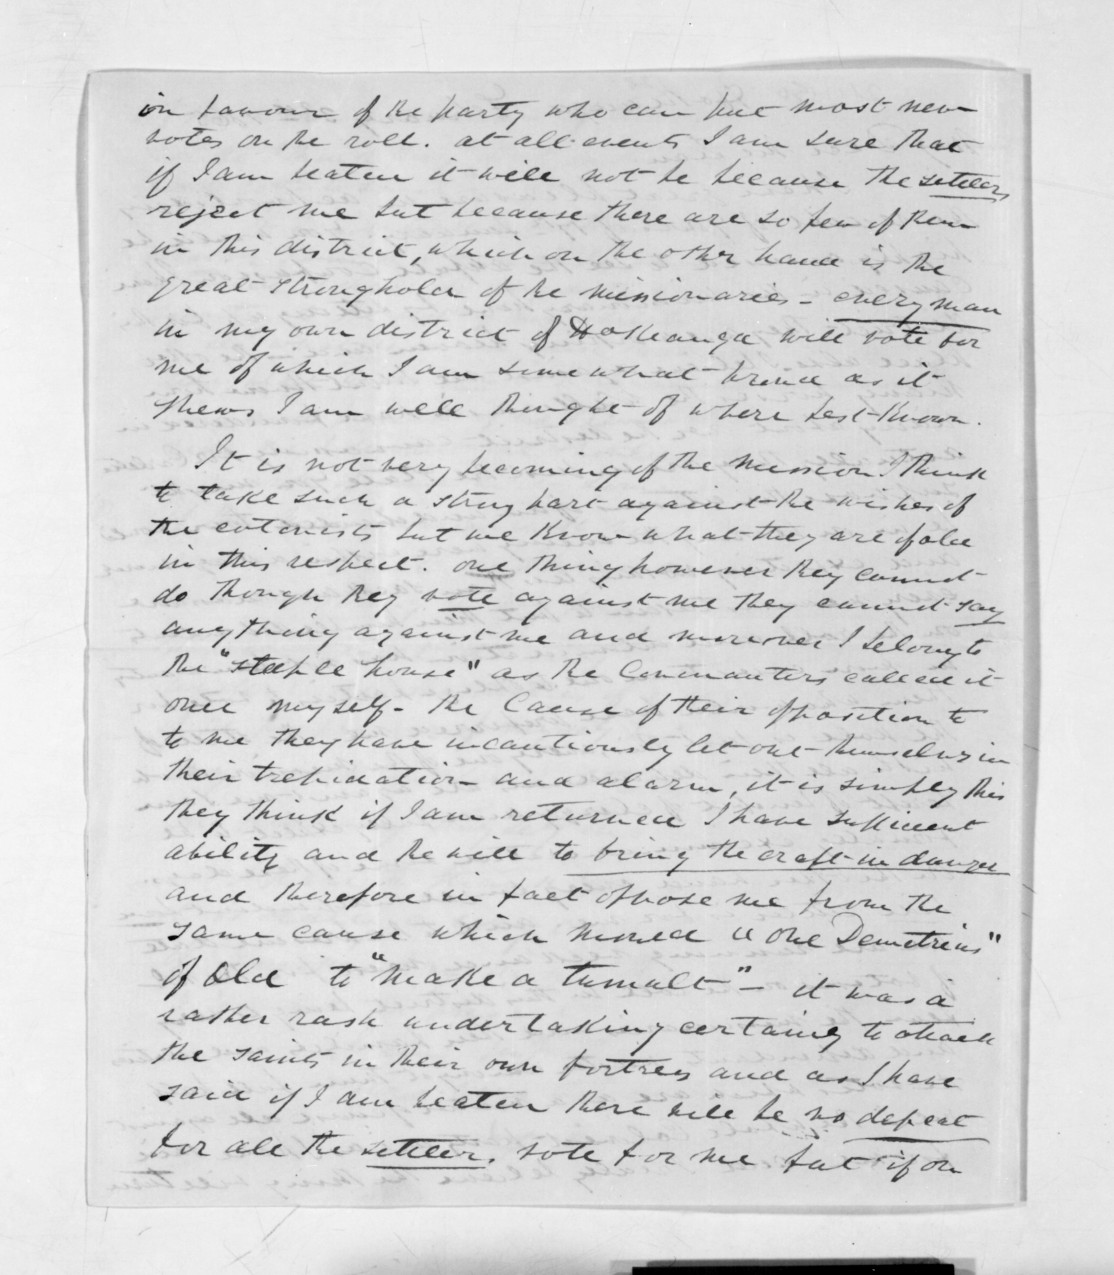 in favour of the party who can put most new
votes on the roll. at all events I am sure that
if I am beaten it will not be because the settlers
reject me but because there are so few of them
in this district, which on the other hand is the
great stronghold of the missionaries - every man
in my own district of Hokianga will vote for
me of which I am somewhat proud as it
shews I am well thought of where best known.
It is not very becoming of the mission I think
to take such a strong part against the wishes of
the colonists but we know what they are of old
in this respect. one thing however they cannot
do though they vote against me they cannot say
anything against me and moreover I belong to
the "steeple house" as the Covenanters called it
once myself - the cause of their opposition to
to me they have incautiously let out themselves in
their trepidation and alarm, it is simply this
they think if I am returned I have sufficient
ability and the will to bring the craft in danger
and therefore in fact oppose me from the
same cause which moved "one Demetrius"
of old to "make a tumult" - it was a
rather rash undertaking certainly to attack
the saints in their own fortress and as I have
said if I am beaten there will be no defeat
for all the settlers vote for me but if on